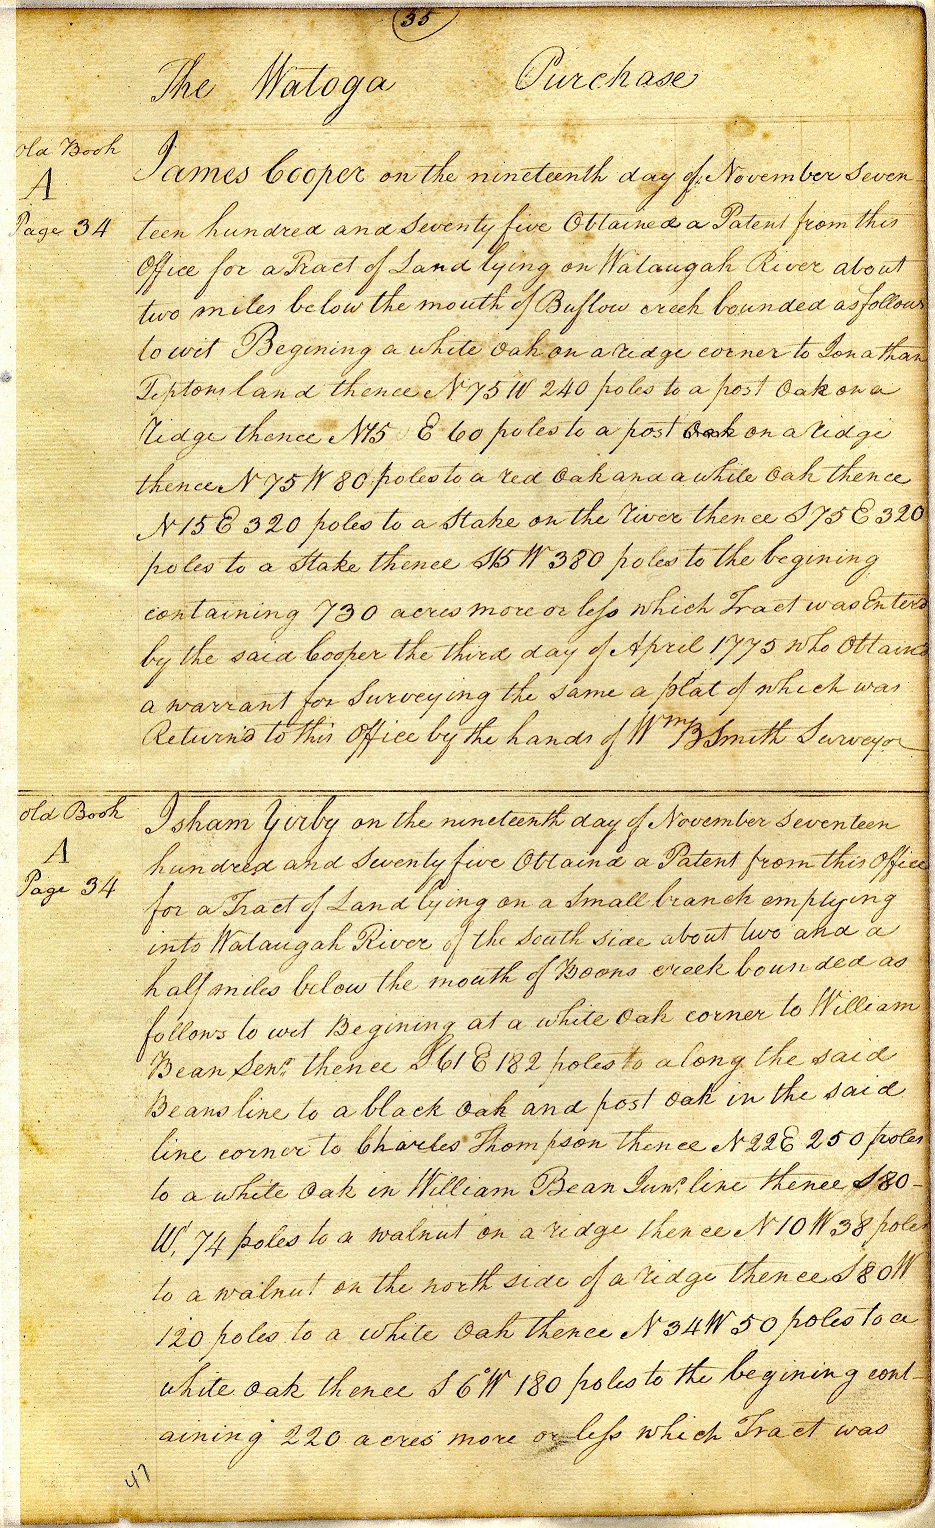 35
The Watoga Purchase
Old Book
A
Page 34
James Cooper on the nineteenth day of November Seven
teen hundred and Seventy five Obtained a Patent from this
Office for a Tract of Land lying on Wataugah River about
two miles below the mouth of Buflow creek bounded as follows
to wit Begining a white Oak on a ridge corner to Jonathan
Tiptons land thence N 75 W 240 poles to a post Oak on a
ridge thence N15 E 60 poles to a post Oak on a ridge
thence N 75 W 80 poles to a red Oak and a white Oak thence
N 15 E 320 poles to a Stake on the river thence S 75 E 320
poles to a Stake thence S15 W 380 poles to the begining
containing 730 acres more or less which Tract was Enterd
by the said Cooper the third day of April 1775 who Obtaind
a warrant for Surveying the same a plat of which was
Returnd to this Office by the hands of Wm B Smith Surveyor
Old Book
A
Page 34
Isham Yirby on the nineteenth day of November Seventeen
hundred and Seventy five Obtaind a Patent from this Office
for a Tract of Land lying on a Small branch emptying
into Wataugah River of the South side about two and a
half miles below the mouth of Boons creek bounded as
follows to wit Begining at a white Oak corner to William
Bean Senr. thence S 61 E 182 poles to along the said
Beans line to a black Oak and post Oak in the said
line corner to Charles Thompson thence N 22 E 250 poles
to a white Oak in William Bean Junr. line thence S 80 -
W, 74 poles to a walnut on a ridge thence N 10 W 38 poles
to a walnut on the north side of a ridge thence S 80 W
120 poles to a white Oak thence N 34 W 50 poles to a
white Oak thence S 6° W 180 poles to the begining cont-
aining 220 acres more or less which Tract was
47